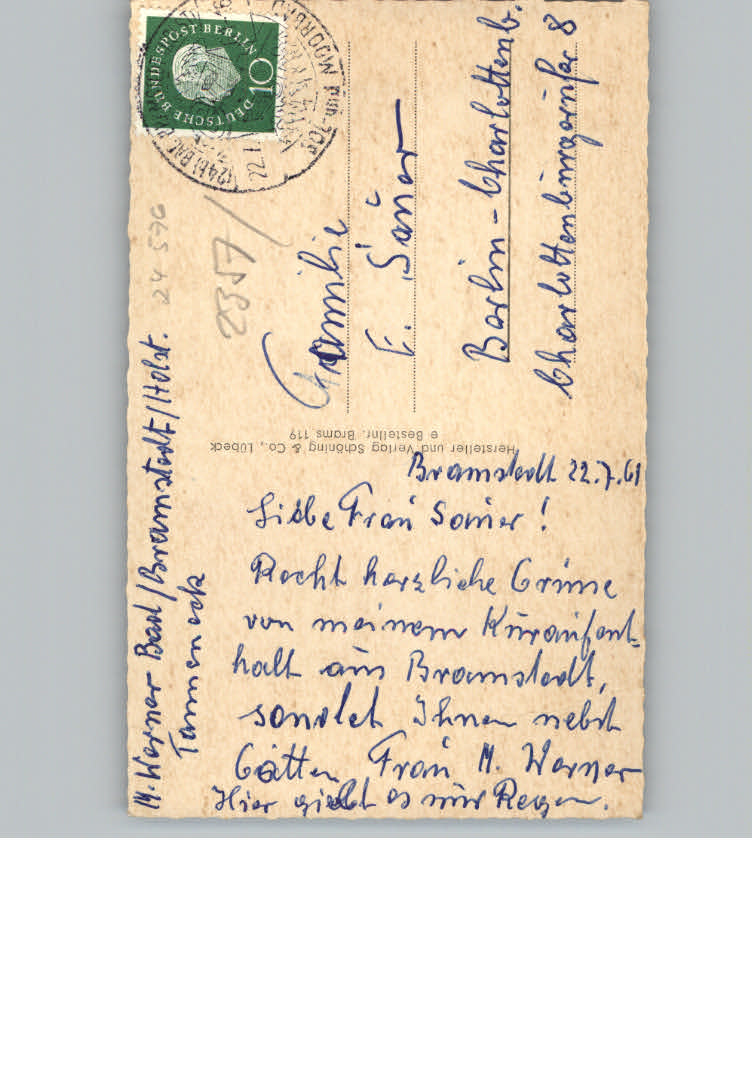 Bramstedt 22.7.61
Liebe Frau Sauer!
Recht herzliche Grüße
von meinem Kuraufent-
halt aus Bramstedt,
sendet Ihnen nebst
Gatten Frau M. Werner
Hier giebt es nur Regen.
M. Werner Bad/Bramstedt/Holst.
Tanneneck
24 576
2357/
Hersteller und Verlag Schöning & Co., Lübeck
e Bestellnr. Brams 119
DEUTSCHE BUNDESPOST BERLIN
10
(24b) BAD
MOORBAD
22.7
Familie
E. Sauer
Berlin-Charlottenb.
Charlottenburgerufer 8